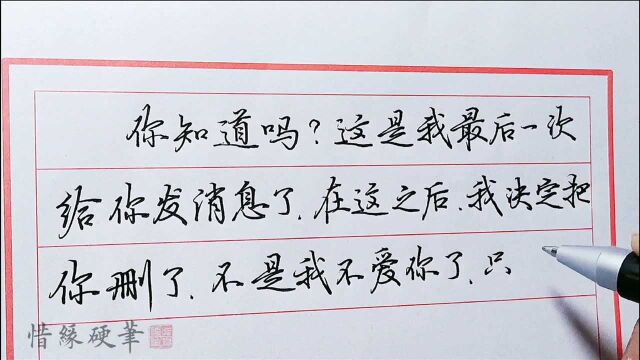 你知道吗?这是我最后一次
给你发消息了.在这之后.我决定把
你删了.不是我不爱你了.只
惜緣硬筆